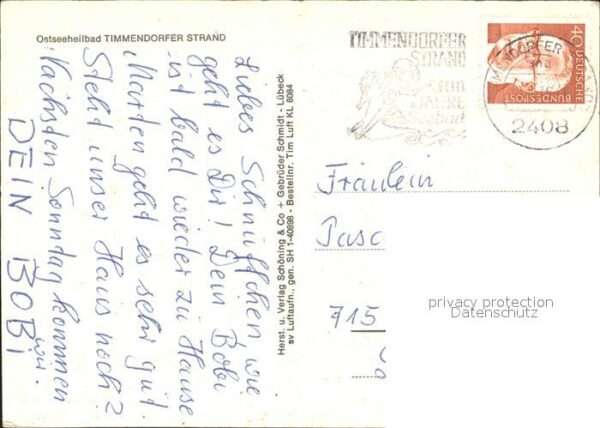 Ostseeheilbad TIMMENDORFER STRAND
Liebes Schnüffchen wie
geht es Dir! Dein Bobi
ist bald wieder zu Hause
Marten geht es sehr gut.
Steht unser Haus noch?
Nächsten Sonntag kommen
wir.
DEIN BOBi
Herst. u. Verlag Schöning & Co + Gebrüder Schmidt - Lübeck
sv Luftaufn., gen. SH 1-40698 - Bestellnr. Tim Luft KL 8084
TIMMENDORFER
STRAND
100
JAHRE
Seebad
2408
40
DEUTSCHE
BUNDESPOST
Fräulein
Pasc
715
privacy protection
Datenschutz